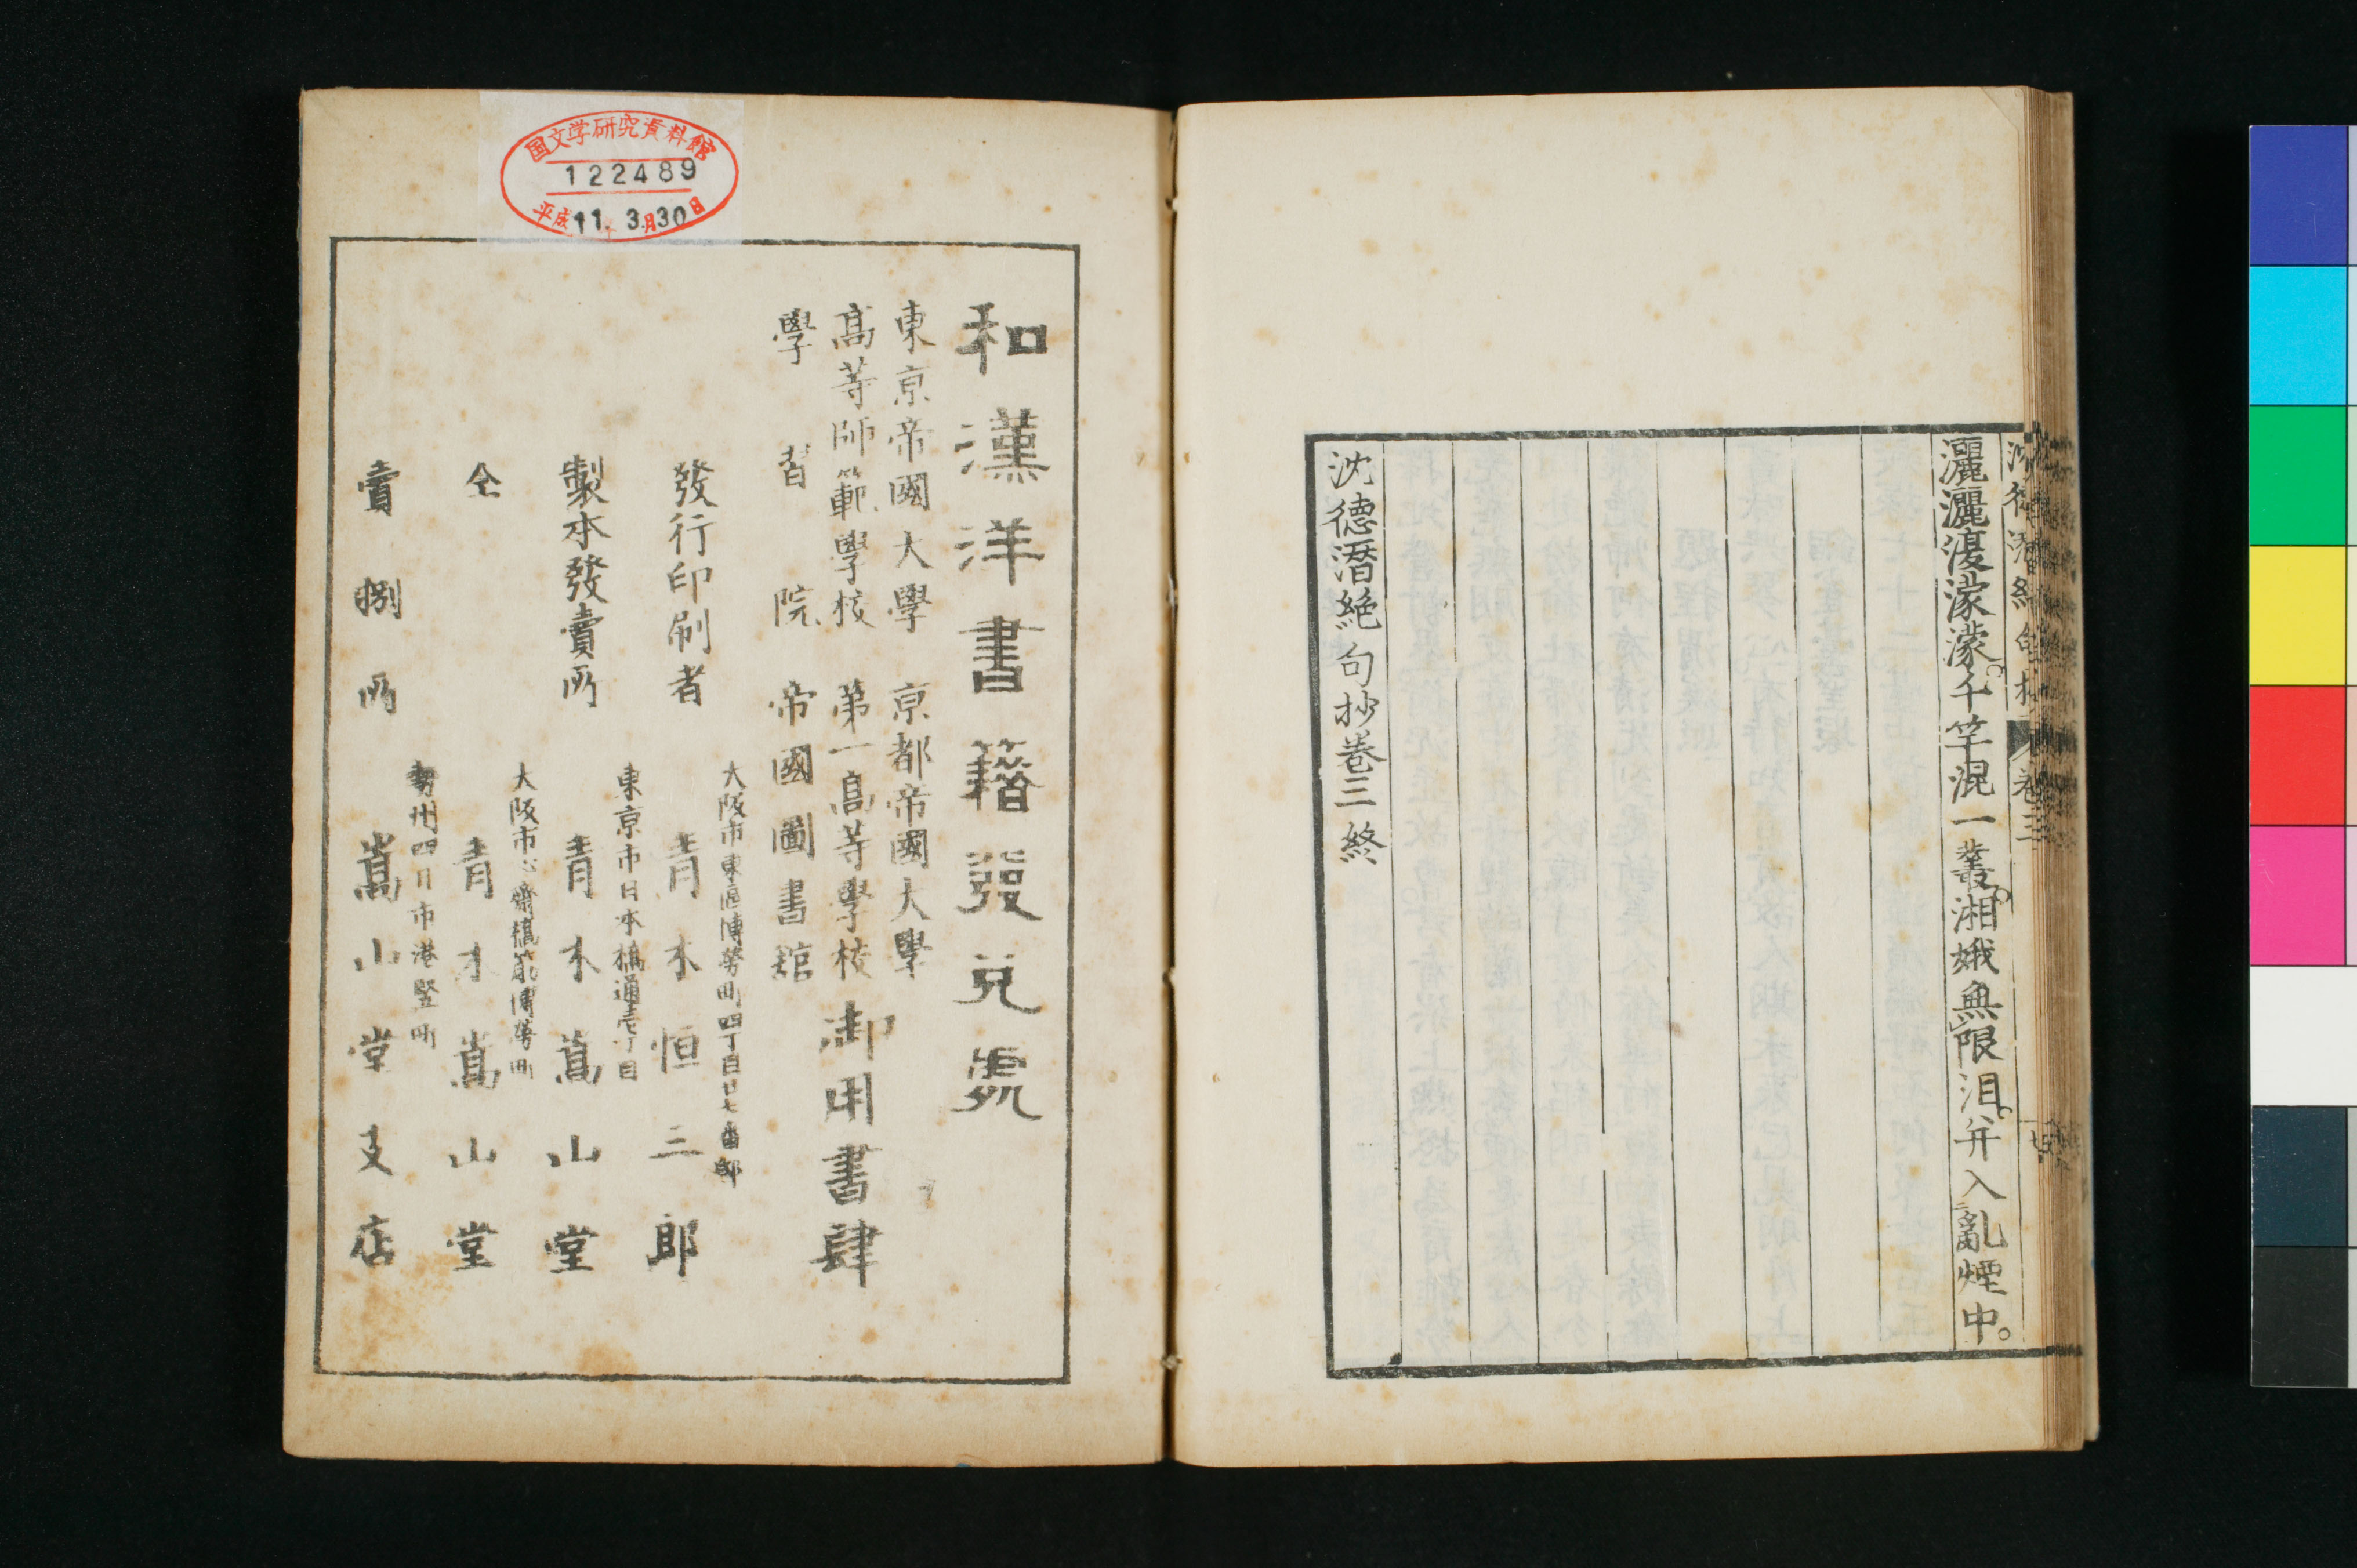 灑灑復濛濛。千竿混一叢。湘娥無限淚。并入亂煙中。
沈德潛絶句抄卷三終
沈德潛絶句抄
卷三
国文学研究資料館
122489
平成11.3月30日
和漢洋書籍發兌處
東京帝國大學 京都帝國大學
高等師範學校 第一高等學校
學習院 帝國圖書館
御用書肆
大阪市東區博勞町四丁目廿七番邸
發行印刷者 青木恒三郎
東京市日本橋通壱丁目
製本發賣所 青木嵩山堂
大阪市心齋橋筋博勞町
仝 青木嵩山堂
勢州四日市港竪町
賣捌所 嵩山堂支店